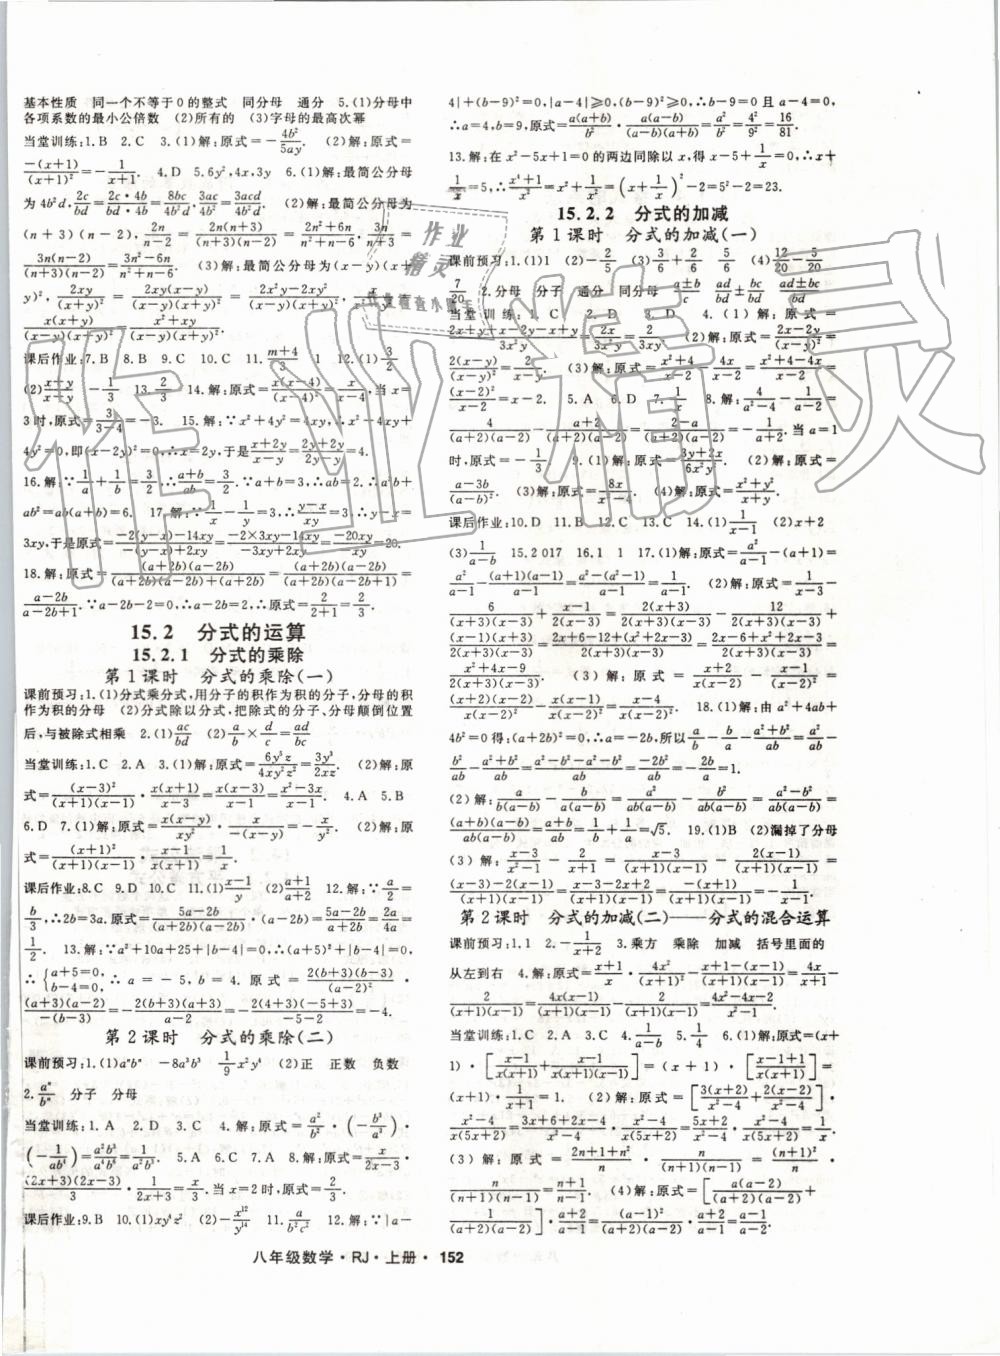 基本性质 同一个不等于0的整式 同分母 通分 5.(1)分母中
各项系数的最小公倍数 (2)所有的 (3)字母的最高次幂
当堂训练:1.B 2.C 3.(1)解:原式=-4b²/5ay. (2)解:原式=
-(x+1)/(x+1)²=-1/(x+1). 4.D 5.6y²,4x,3y 6.(1)解:最简公分母
为4b²d, 2c/bd=(2c·4b)/(bd·4b)=8bc/4b²d, 3ac/4b²=3acd/4b²d. (2)解:最简公分母为
(n+3)(n-2), 2n/(n-2)=2n(n+3)/(n-2)(n+3)=(2n²+6n)/(n-2)(n+3), 3n/(n+3)=
3n(n-2)/(n+3)(n-2)=(3n²-6n)/(n+3)(n-2). (3)解:最简公分母为(x-y)(x+
y)², 2xy/(x+y)²=2xy(x-y)/(x+y)²(x-y)=(2x²y-2xy²)/(x+y)²(x-y), x/(x²-y²)=
x(x+y)/(x-y)(x+y)²=(x²+xy)/(x-y)(x+y)².
课后作业:7.B 8.B 9.C 10.C 11.(m+4)/3 1 12.(1)3/2
(2)(x+y)/(x-y) -1/3 13.2/3 14.解:原式=x(x-4)/(x-4)²=x/(x-4),当x=
3时,原式=3/(3-4)=-3. 15.解:∵x²+4y²=4xy,∴x²-4xy+
4y²=0,即(x-2y)²=0,∴x=2y,于是(x+2y)/(x-y)=(2y+2y)/(2y-y)=4.
16.解:∵1/a+1/b=3/2,∴(a+b)/ab=3/2.∵a+b=3,∴ab=2,∴a²b+
ab²=ab(a+b)=6. 17.解:∵1/x-1/y=3,∴(y-x)/xy=3,∴y-x=
3xy,于是原式=(-2(y-x)-14xy)/(-(y-x)+2xy)=(-2×3xy-14xy)/(-3xy+2xy)=-20xy/-xy=20.
18.解:原式=(a+2b)(a-2b)/((a+2b)(a-2b)+(a+2b))=(a+2b)(a-2b)/(a+2b)(a-2b+1)=
(a-2b)/(a-2b+1).∵a-2b-2=0,∴a-2b=2,∴原式=2/(2+1)=2/3.
15.2 分式的运算
15.2.1 分式的乘除
第1课时 分式的乘除(一)
课前预习:1.(1)分式乘分式,用分子的积作为积的分子,分母的积
作为积的分母 (2)分式除以分式,把除式的分子、分母颠倒位置
后,与被除式相乘 2.(1)ac/bd (2)a/b×d/c=ad/bc
当堂训练:1.C 2.A 3.(1)解:原式=6y²z/4xy²z²=3/2xz. (2)解:原
式=(x-3)²/(x+1)(x-1)·x(x+1)/(x-3)=x(x-3)/(x-1)=(x²-3x)/(x-1). 4.A 5.B
6.D 7.(1)解:原式=x(x-y)/xy²·x/-(x-y)=-x/y². (2)解:原
式=(x+1)²/(x+1)(x-1)·(x-1)/x=(x+1)/x.
课后作业:8.C 9.D 10.C 11.(1)(x-1)/y (2)(a+1)/(a+2) 12.解:∵a/2=
b/3,∴2b=3a.原式=(5a-2b)/(a+2b)(a-2b)·(a-2b)=(5a-2b)/(a+2b)=2a/4a=
1/2. 13.解:∵a²+10a+25+|b-4|=0,∴(a+5)²+|b-4|=0,
∴{a+5=0, b-4=0, ∴a=-5,b=4.原式=2(b+3)(b-3)/(a-2)²·
(a+3)(a-2)/-(b-3)=-2(b+3)(a+3)/(a-2)=-2(4+3)(-5+3)/(-5-2)=-4.
第2课时 分式的乘除(二)
课前预习:1.(1)aⁿbⁿ -8a³b³ 1/9x²y⁴ (2)正 正数 负数
2.aⁿ/bⁿ 分子 分母
当堂训练:1.A 2.D 3.C 4.解:原式=a²/b²·(-b³/a³)
·(-1/ab⁴)=a²b³/a⁴b⁶=1/a²b³. 5.A 6.C 7.A 8.解:原式=x/(2x-3)·
(2x+3)(2x-3)/3·1/(2x+3)=x/3.当x=2时,原式=2/3.
课后作业:9.B 10.(1)xy⁶z² (2)-x¹²/z¹⁴ 11.a/b²c² 12.解:∵|a-
4|+(b-9)²=0,|a-4|≥0,(b-9)²≥0,∴b-9=0且a-4=0,
∴a=4,b=9,原式=a(a+b)/b²·a(a-b)/(a-b)(a+b)=a²/b²=4²/9²=16/81.
13.解:在x²-5x+1=0的两边同除以x,得x-5+1/x=0,∴x+
1/x=5,∴(x⁴+1)/x²=x²+1/x²=(x+1/x)²-2=5²-2=23.
15.2.2 分式的加减
第1课时 分式的加减(一)
课前预习:1.(1)1 (2)-2/5 (3)3/6+2/6 5/6 (4)12/20-5/20
7/20 2.分母 分子 通分 同分母 (a±b)/c ad/bd±bc/bd (ad±bc)/bd
当堂训练:1.C 2.D 3.C 4.(1)解:原式=
(2x+y+x-2y-x+y)/3x²y=2x/3x²y=2/3xy. (2)解:原式=(2x-2y)/(x-y)²=
2(x-y)/(x-y)²=2/(x-y). (3)解:原式=(x²+4)/(x-2)-4x/(x-2)=(x²+4-4x)/(x-2)=
(x-2)²/(x-2)=x-2. 5.A 6.D 7.1/x 8.解:原式=4/(a²-4)-1/(a-2)=
4/(a+2)(a-2)-(a+2)/(a+2)(a-2)=(2-a)/(a+2)(a-2)=-1/(a+2).当a=1
时,原式=-1/3. 9.(1)解:原式=(3y+2x)/6x²y. (2)解:原式=
(a-3b)/(a-b)². (3)解:原式=8x/(x-4). (4)解:原式=(x²+y²)/(x+y).
课后作业:10.D 11.B 12.C 13.C 14.(1)1/(x-1) (2)x+2
(3)1/(a-b) 15.2 017 16.1 1 17.(1)解:原式=a²/(a-1)-(a+1)=
a²/(a-1)-(a+1)(a-1)/(a-1)=(a²-a²+1)/(a-1)=1/(a-1). (2)解:原式=1/(x-3)-
6/(x+3)(x-3)+(x-1)/2(x+3)=2(x+3)/2(x+3)(x-3)-12/2(x+3)(x-3)+
(x-1)(x-3)/2(x+3)(x-3)=(2x+6-12+(x²-4x+3))/2(x+3)(x-3)=(2x-6+x²-4x+3)/2(x+3)(x-3)=
(x-3)(x+1)/2(x+3)(x-3)=(x+1)/2(x+3). (3)解:原式=
(x+2)(x-2)/x(x-2)²-x(x-1)/x(x-2)²=(x-4)/x(x-2)². 18.(1)解:由a²+4ab+
4b²=0得:(a+2b)²=0,∴a=-2b,所以(a-b)/b-b/a=(a²+b²)/ab=
b²/ab-(a²+b²)/ab=(a²-b²-a²-b²)/ab=-2b²/ab=-2b/a=1.
(2)解:a/b(a-b)-b/a(a-b)=a²/ab(a-b)-b²/ab(a-b)=
(a+b)(a-b)/ab(a-b)=(a+b)/ab=1/b+1/a=√5. 19.(1)B (2)漏掉了分母
(3)解:(x-3)/(x²-1)-2/(x+1)=(x-3)/(x+1)(x-1)-2(x-1)/(x+1)(x-1)=
(x-3)-2(x-1)/(x+1)(x-1)=-(x+1)/(x+1)(x-1)=-1/(x-1).
第2课时 分式的加减(二)——分式的混合运算
课前预习:1.1 2.-1/(x+2) 3.乘方 乘除 加减 括号里面的
从左到右 4.解:原式=(x+1)/x·4x²/(x+1)²-2/(x+1)(x-1)=4x/(x+1)
-2/(x+1)(x-1)=(4x(x-1)-2)/(x+1)(x-1)=(4x²-4x-2)/(x²-1).
当堂训练:1.C 2.A 3.C 4.1/(a-b) 5.1/4 6.(1)解:原式=(x+
1)·[(x-1)/(x+1)(x-1)+1/(x+1)(x-1)]=(x+1)·(x-1+1)/(x+1)(x-1)=
(x+1)·1/(x+1)=1. (2)解:原式=[3(x+2)/(x²-4)+2(x-2)/(x²-4)]·
(x²-4)/x(5x+2)=(3x+6+2x-4)/(x²-4)·(x²-4)/x(5x+2)=(5x+2)/(x²-4)·(x²-4)/x(5x+2)=1/x.
(3)解:原式=(2n+1+n²)/n·n/(n+1)(n-1)=(n+1)²/n·
n/(n+1)(n-1)=(n+1)/(n-1). (4)解:原式=[a(a-2)/(a+2)(a-2)+
1/(a+2)(a-2)]·(a+2)/(a-1)=(a-1)²/(a+2)(a-2)·(a+2)/(a-1)=(a-1)/(a-2).
八年级数学·RJ·上册·152
作业精灵
作业
精灵
作业检查小助手